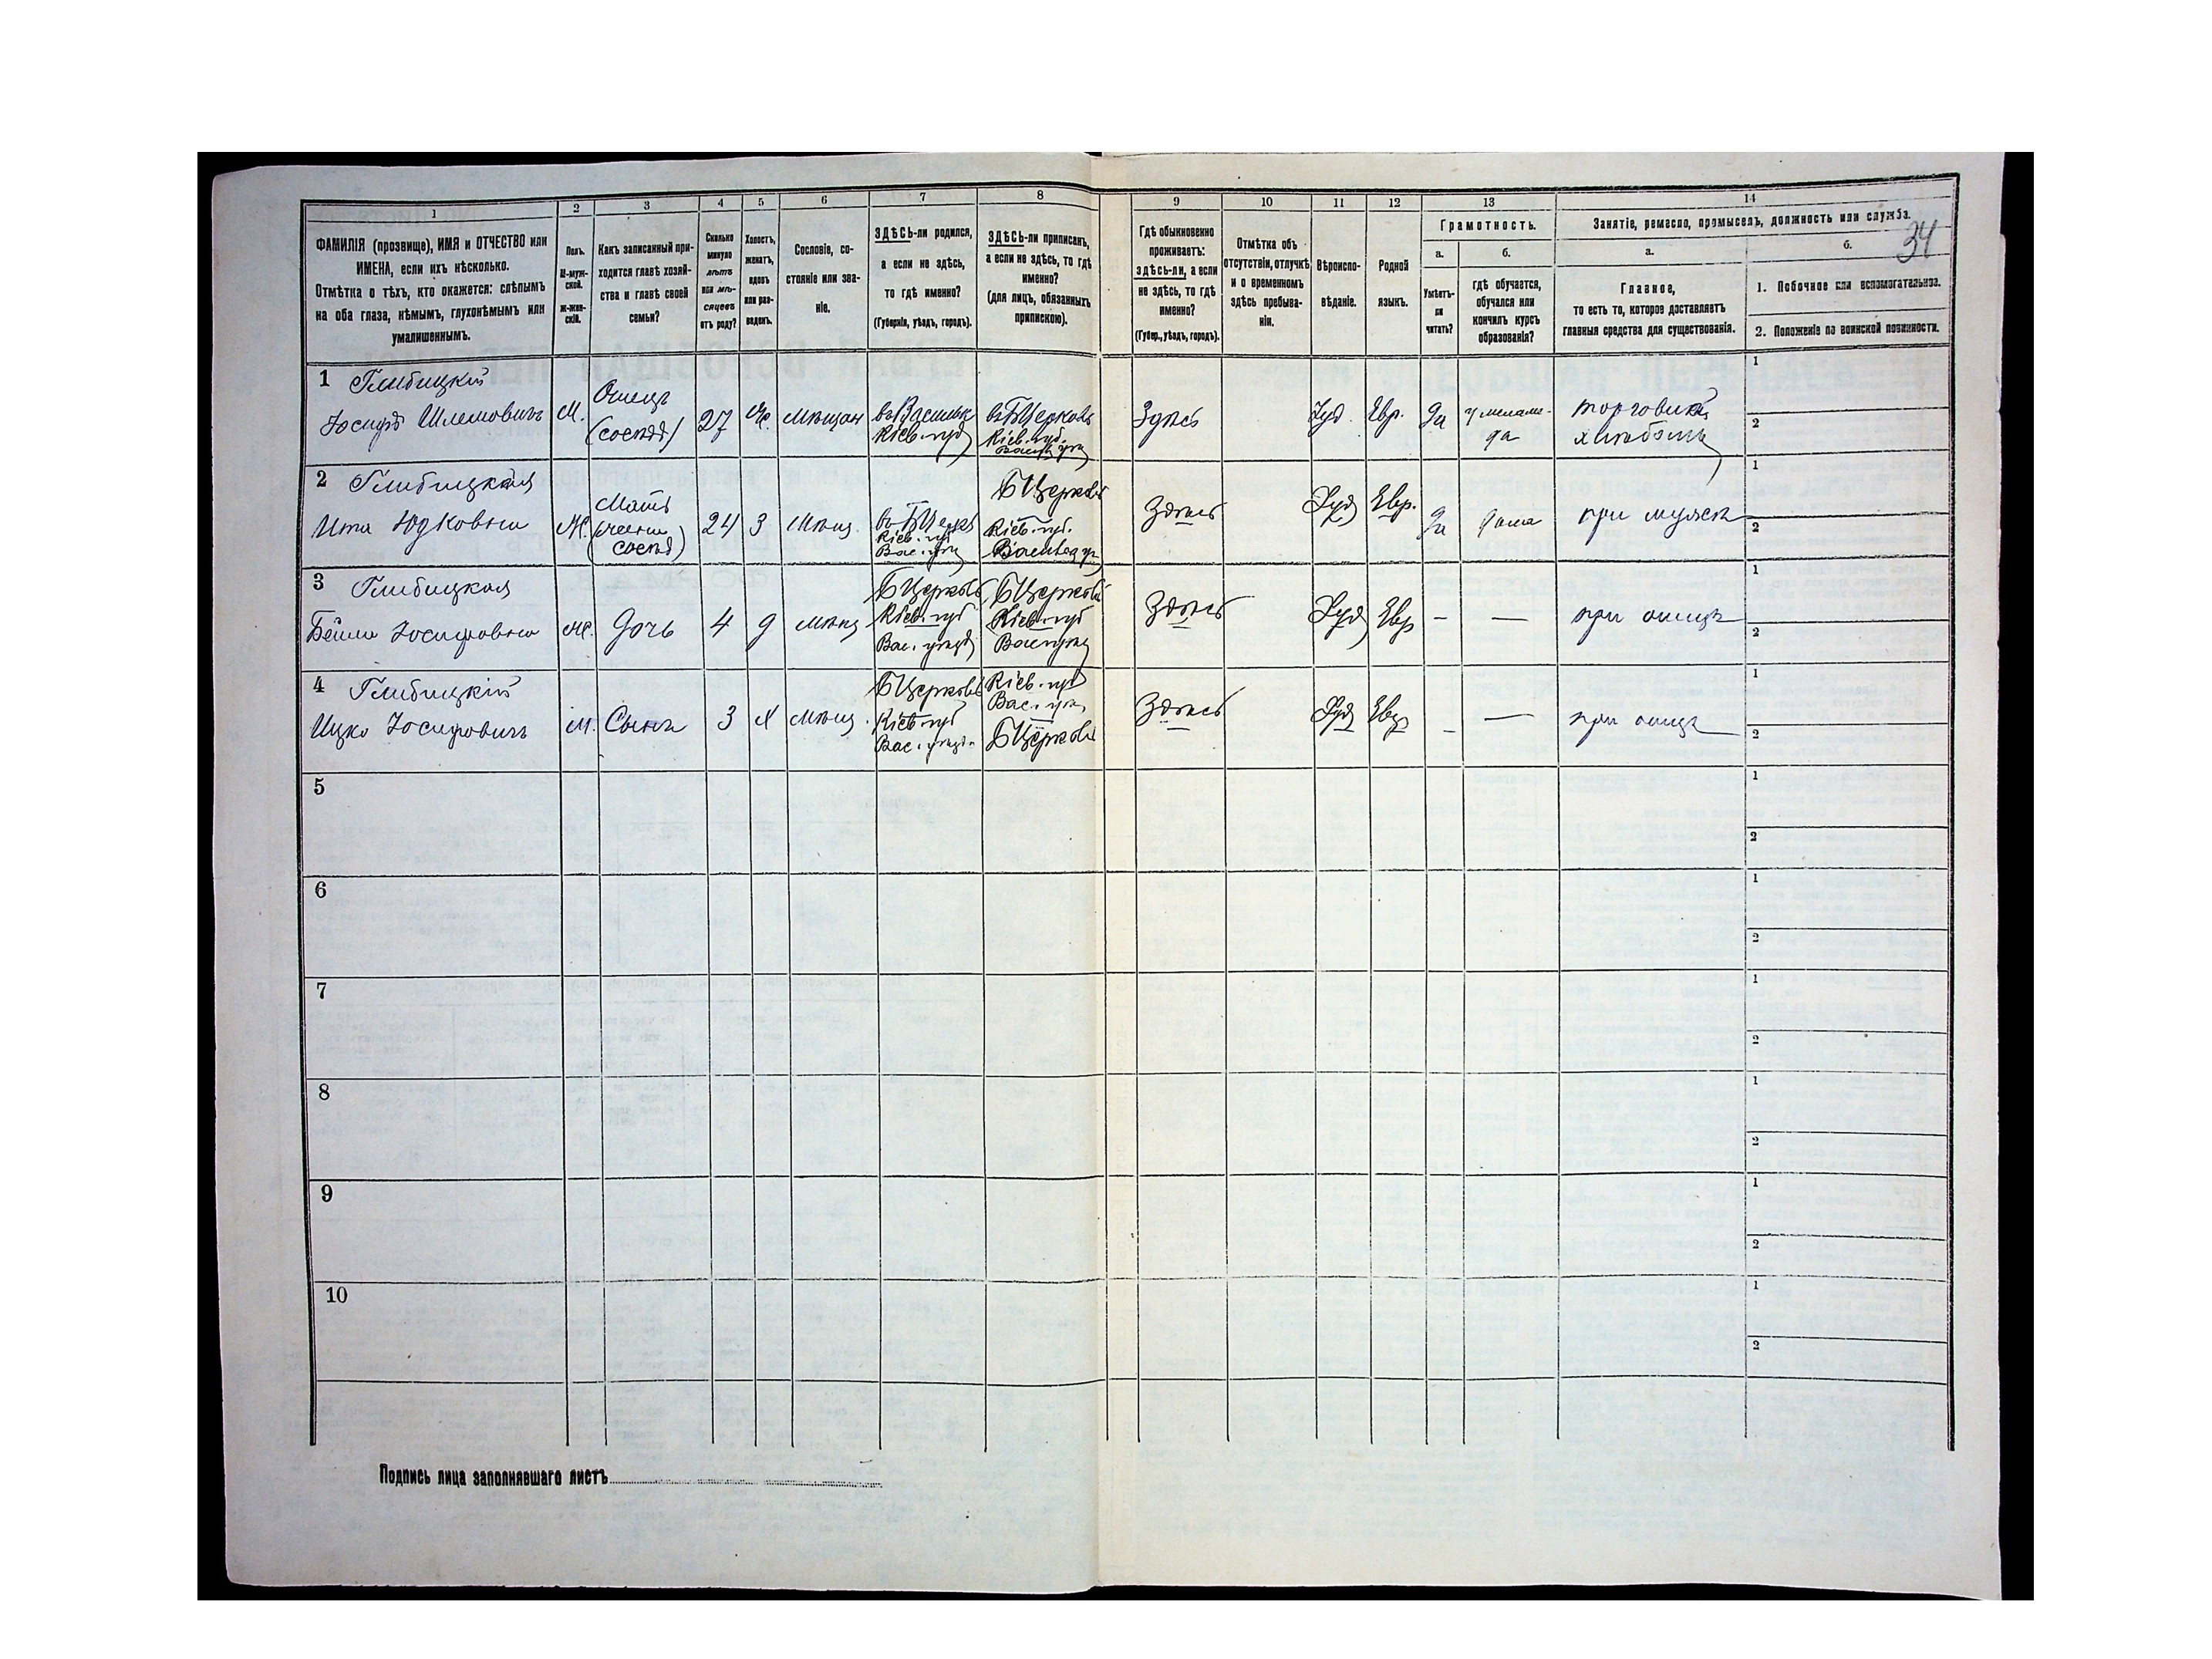 34
1
2
3
4
5
6
7
8
9
10
11
12
13
14
ФАМИЛІЯ (прозвище), ИМЯ и ОТЧЕСТВО или
ИМЕНА, если ихъ нѣсколько.
Отмѣтка о тѣхъ, кто окажется: слѣпымъ
на оба глаза, нѣмымъ, глухонѣмымъ или
умалишеннымъ.
Полъ.
М-муж-
ской.
Ж-жен-
скій.
Какъ записанный при-
ходится главѣ хозяй-
ства и главѣ своей
семьи?
Сколько
минуло
лѣтъ
или мѣ-
сяцевъ
отъ роду?
Холостъ,
женатъ,
вдовъ
или раз-
веденъ.
Сословіе, со-
стояніе или зва-
ніе.
ЗДѢСЬ-ли родился,
а если не здѣсь,
то гдѣ именно?
(Губернія, уѣздъ, городъ).
ЗДѢСЬ-ли приписанъ,
а если не здѣсь, то гдѣ
именно?
(для лицъ, обязанныхъ
припискою).
Гдѣ обыкновенно
проживаетъ:
здѣсь-ли, а если
не здѣсь, то гдѣ
именно?
(Губер., уѣздъ, городъ).
Отмѣтка объ
отсутствіи, отлучкѣ
и о временномъ
здѣсь пребыва-
ніи.
Вѣроиспо-
вѣданіе.
Родной
языкъ.
Грамотность.
а.
Умѣетъ-
ли
читать?
б.
гдѣ обучается,
обучался или
кончилъ курсъ
образованія?
Занятіе, ремесло, промыселъ, должность или служба.
а.
Главное,
то есть то, которое доставляетъ
главныя средства для существованія.
б.
1. Побочное или вспомогательное.
2. Положеніе по воинской повинности.
1 Глибицкій
Іосифъ Шлемовичъ
М.
Отецъ
(сосѣдъ)
27
Же.
мѣщан
въ Васильк
Кіев. губ
въ БЦерковь
Кіев. губ.
Здѣсь
Іуд.
Евр.
да
у меламе-
да
торговецъ
хлѣбомъ
1
2
2 Глибицкая
Ита Юдковна
Ж.
Мать
(жена
сосѣд)
24
З
Мѣщ.
въ БЦеркв
Кіев. губ
Вас. уѣз
БЦерковь
Кіев. губ.
Здѣсь
Іуд
Евр.
да
дома
при мужѣ
1
2
3 Глибицкая
Бейла Іосифовна
Ж.
Дочь
4
д
мѣщ
БЦерковь
Кіев. губ
Вас. уѣздъ
БЦерковь
Кіев. губ
Вас уѣзд
Здѣсь
Іуд
Евр
-
—
при отцѣ
1
2
4 Глибицкій
Ицко Іосифовичъ
М.
Сынъ
3
Х
мѣщ.
БЦерковь
Кіев. губ
Вас. уѣзд.
Кіев. губ
Вас. уѣз,
БЦерковь
Здѣсь
Іуд
Евр
-
—
при отцѣ
1
2
5
1
2
6
1
2
7
1
2
8
1
2
9
1
2
10
1
2
Подпись лица заполнявшаго листъ